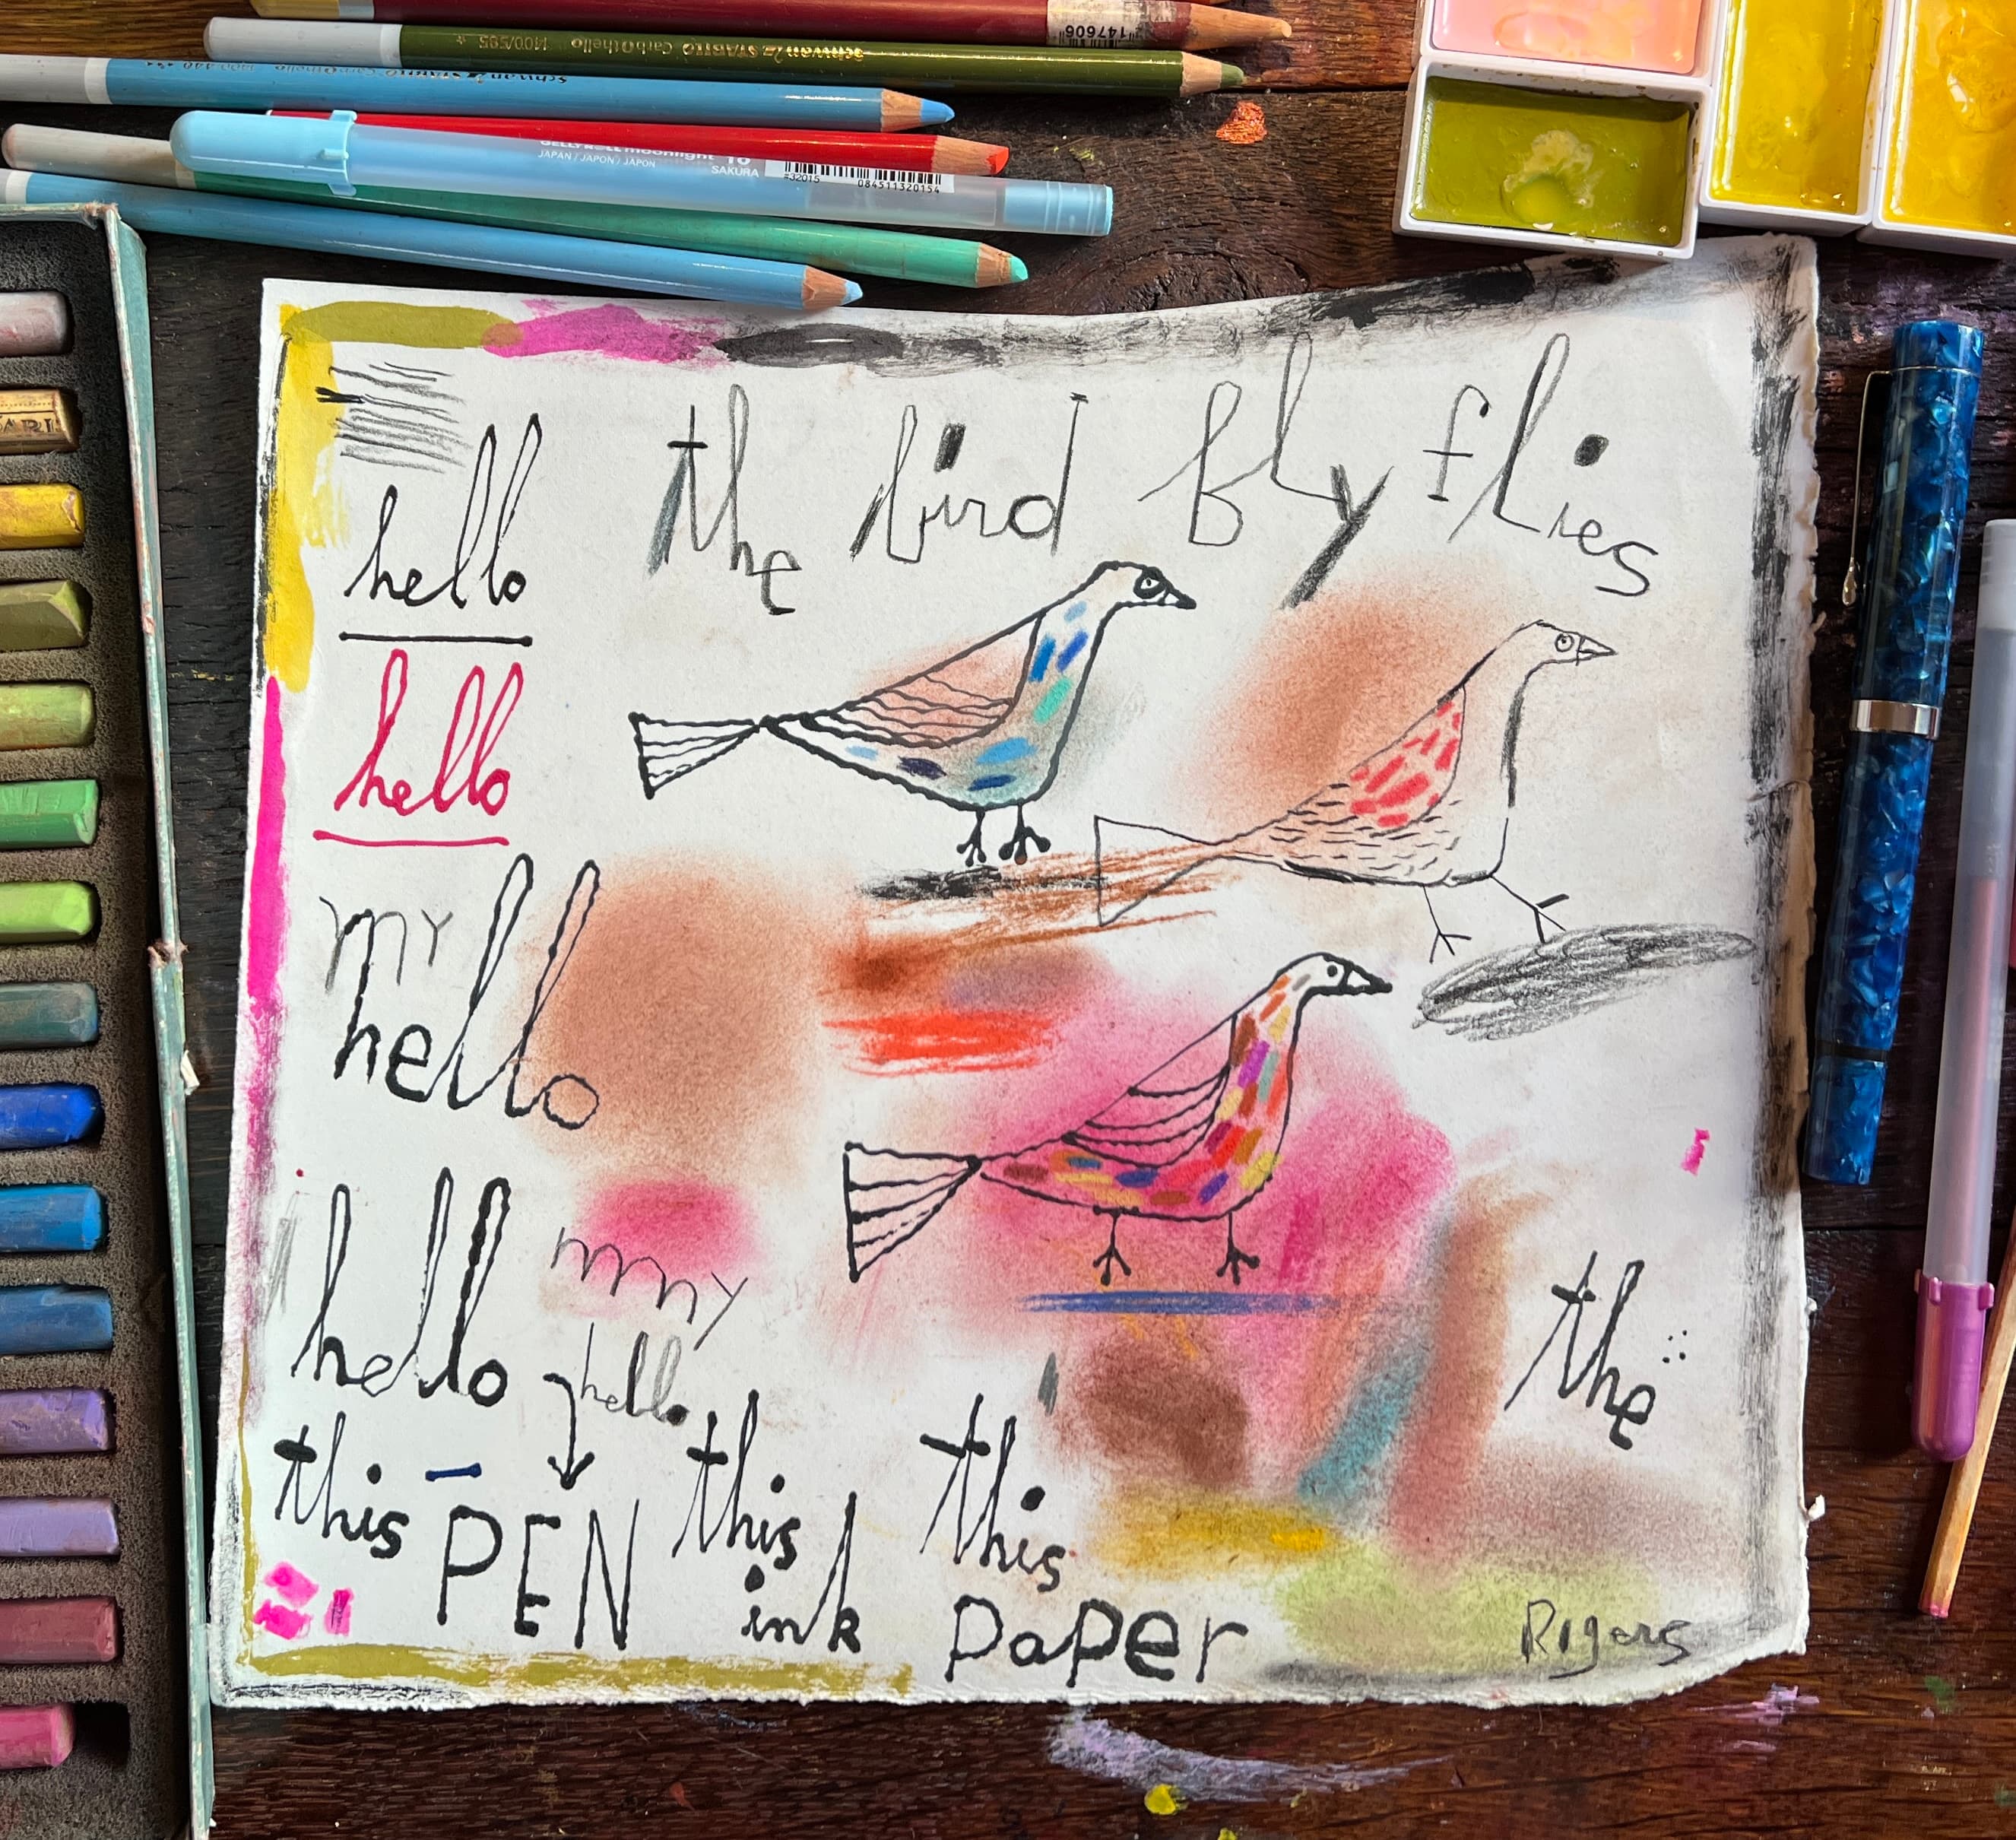 147606
Schwan STABILO CarbOthello 1400/595
Schwan STABILO CarbOthello
GELLY ROLL moonlight 10
JAPAN / JAPON / JAPON
SAKURA
#32015 084511320154
the bird fly flies
hello
hello
my
hello
hello
mmy
hello
the
this PEN this ink this paper
Rogers